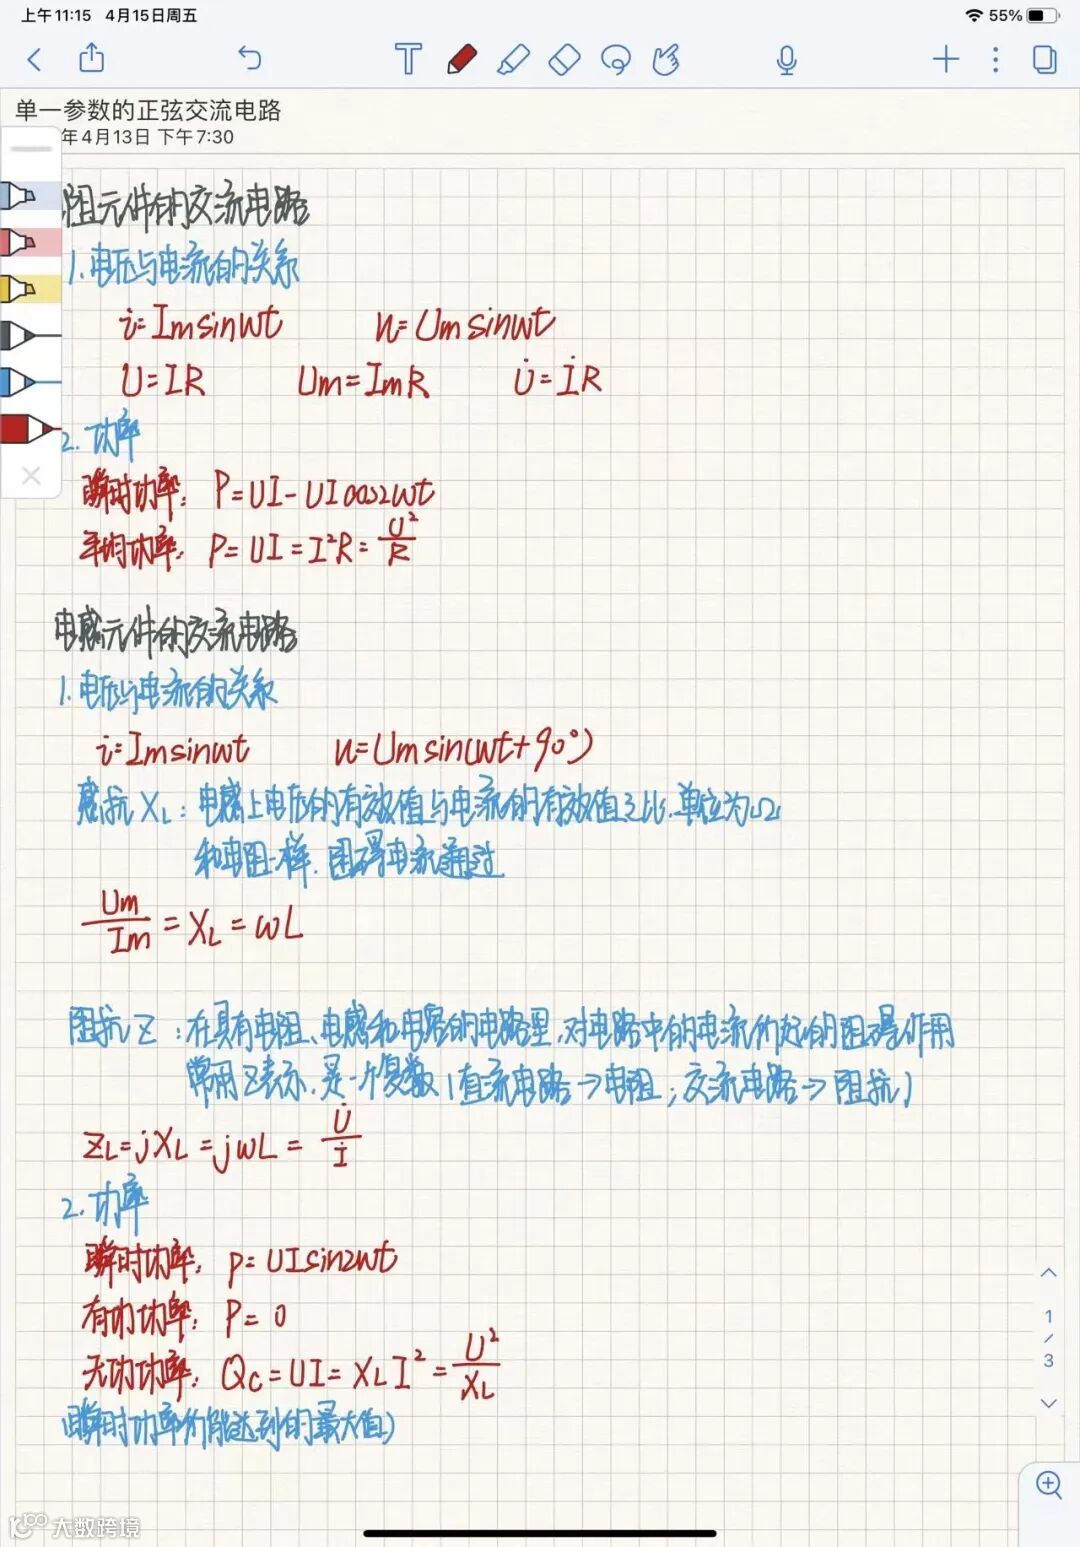 上午11:15 4月15日周五 55%
单一参数的正弦交流电路
年4月13日 下午7:30
阻元件的交流电路
1.电压与电流的关系
i=Imsinwt u=Umsinwt
U=IR Um=ImR U̇=İR
2.功率
瞬时功率:P=UI-UIcos2wt
平均功率:P=UI=I²R=U²/R
电感元件的交流电路
1.电压与电流的关系
i=Imsinwt u=Umsin(wt+90°)
感抗XL:电感上电压的有效值与电流的有效值之比.单位为Ω
和电阻一样.阻碍电流通过
Um/Im=XL=wL
阻抗Z:在具有电阻、电感和电容的电路里,对电路中的电流所起的阻碍作用
常用Z表示.是一个复数(直流电路→电阻;交流电路→阻抗)
ZL=jXL=jwL=U̇/İ
2.功率
瞬时功率:p=UIsin2wt
有功功率:P=0
无功功率:Qc=UI=XLI²=U²/XL
(瞬时功率所能达到的最大值)
1/3
大数跨境